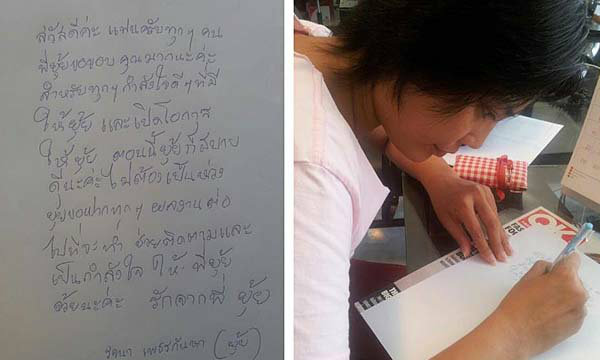 สวัสดีค่ะ แฟนคลับทุกๆ คน
พี่ยุ้ยขอขอบคุณมากนะค่ะ
สำหรับทุกๆ กำลังใจดีๆ ที่มี
ให้ยุ้ย และเปิดโอกาส
ให้ยุ้ย ตอนนี้ยุ้ยก็สบาย
ดีนะค่ะ ไม่ต้องเป็นห่วง
ยุ้ยขอฝากทุกๆ ผลงานต่อ
ไปที่จะทำ ช่วยติดตามและ
เป็นกำลังใจ ให้ พี่ยุ้ย
ด้วยนะค่ะ รักจากพี่ ยุ้ย
(ยุ้ย)